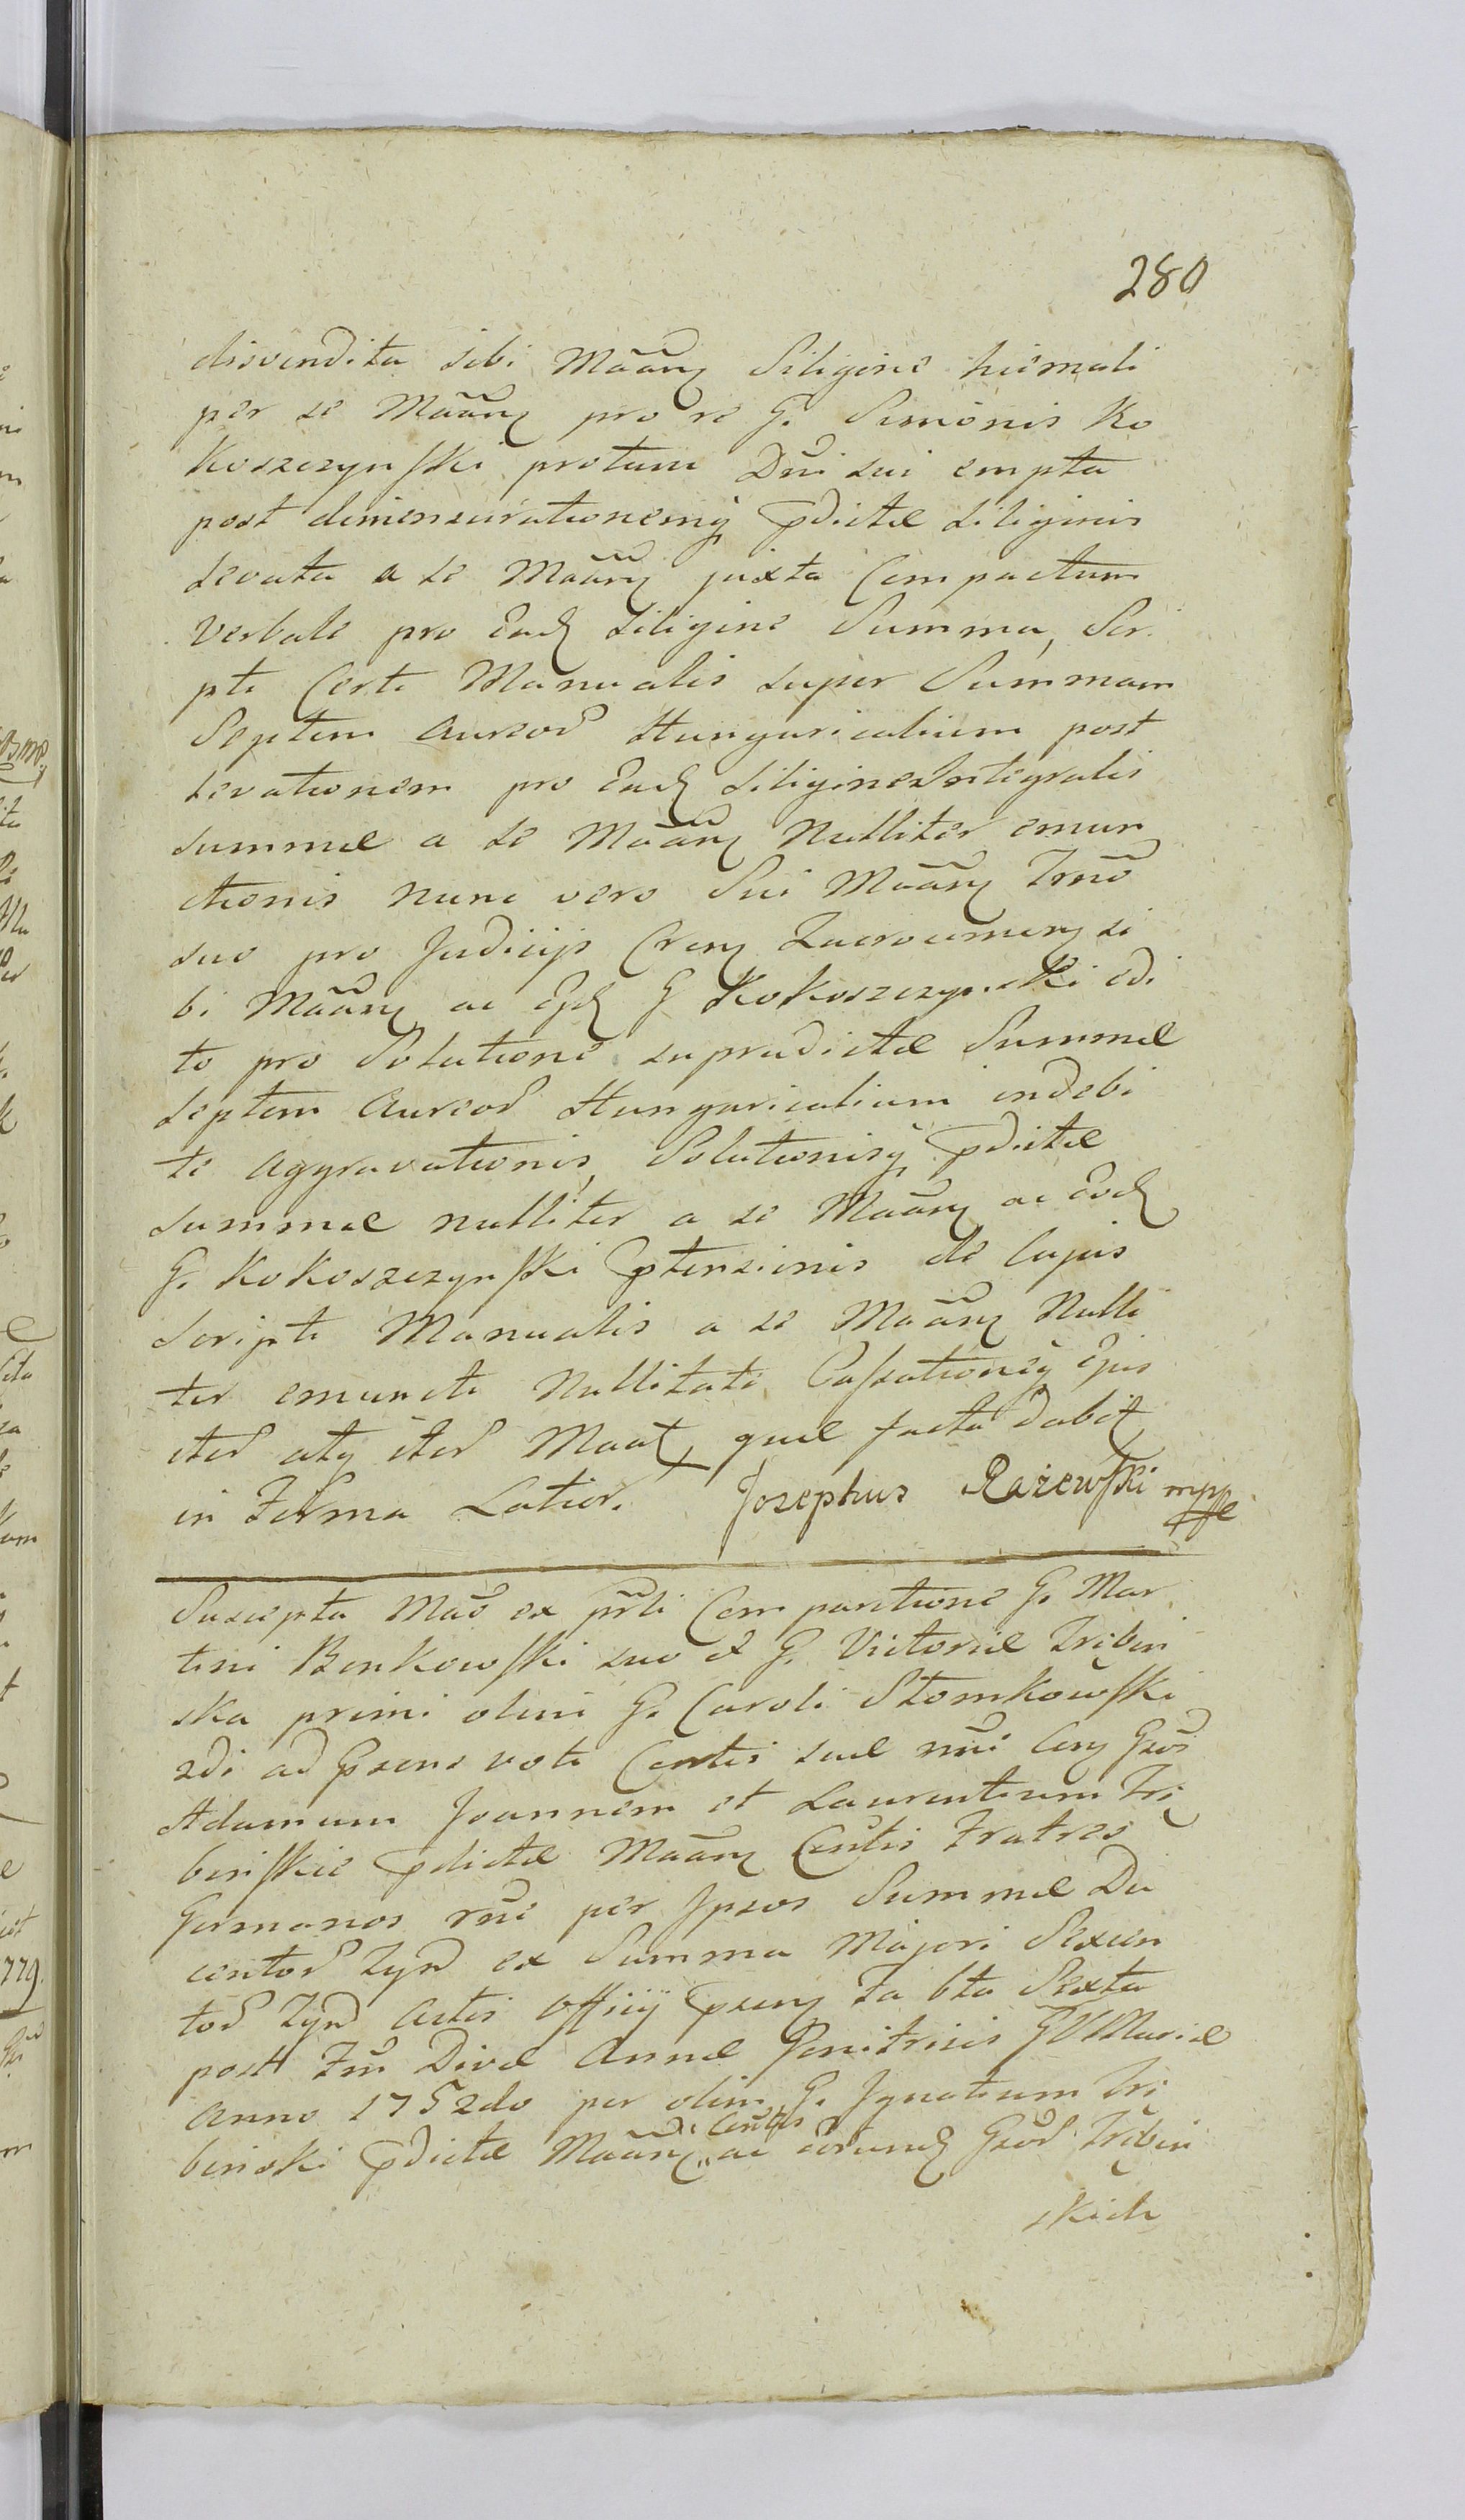 280
disvendita sibi Mãang Siligine hiemali
per se Mãang pro re G. Simonis Ko
koszczynski protunc Dñi sui empta
post dimensurationemq pdictæ siliginis
levata a se Mãang juxta Compactum
Verbale pro Ead siligine Summa, Scr
pti Certi Manualis super Summam
Septem Aureor Hungaricalium post
levationem pro Ead siligine Integralis
summæ a se Mãang Nulliter emun
ctionis nunc vero Sui Mãang Trmõ
suo pro Judicijs Cren si
bi Mãang ac G Kokoszczynski edi
to pro Solutione supradictæ Summæ
septem Aureor Hungaricalium indebi
te aggravationis, Solutionisq pdictæ
summæ nulliter a se Mãang ac Eod
G. Kokoszczynski ptensionis de cujus
scripti Manualis a se Mãang Nulli
ter emuncti Nullitate Cassationeq Ejus
iter atq iter Maat, quæ facta dabit
in Forma Latior. Josephus Rażewski mpp
Suscepta Mão ex pñli Comparitione G. Mar
tini Benkowski suo & G. Victoriæ Trąbin
ska primi olim G. Caroli Słomkowski
2di ad psens voti Contis suæ nõie Con Gsos
Adamum Joannem et Laurentium Trą
binskie pdictæ Mãang Contis Fratres
Germanos rõe per Ipsos Summæ Du
centor Zyn ex Summa Majori Sexcen
tor Zyn Actis Offciÿ psen Fa 6ta Sexta
post Fm Divæ Annæ Genitricis BVMariæ
Anno 1752do per olim G. Ignatium Trą
binski pdictæ Mãang Contis ac eorund Gsor Trąbin
skich